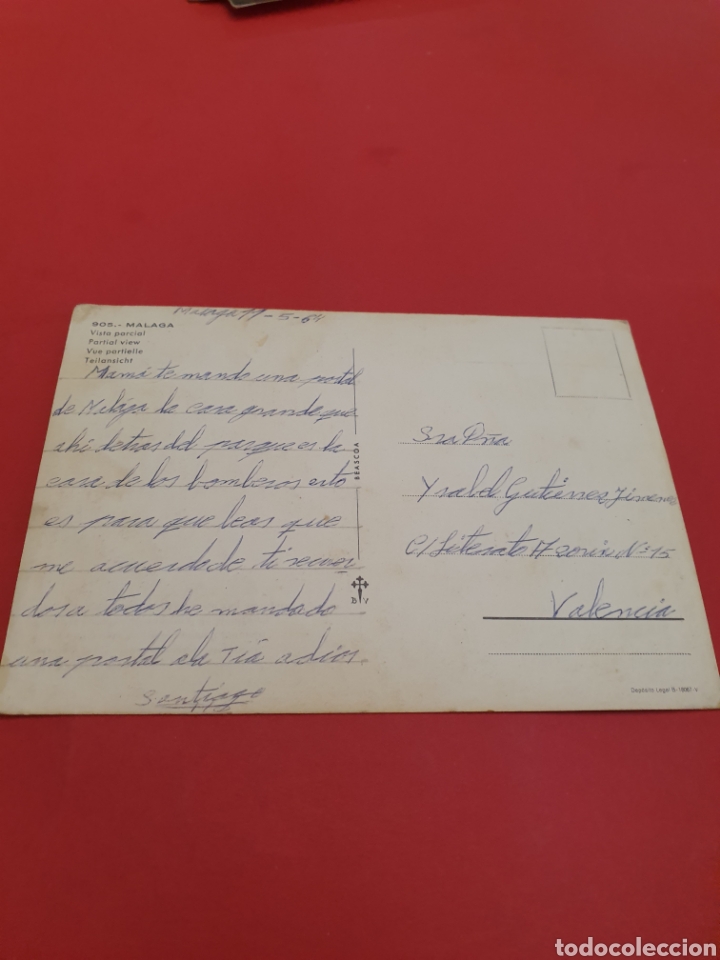 Malaga 11-5-64
905.- MALAGA
Vista parcial
Partial view
Vue partielle
Teilansicht
Mamá te mando una postal
de Malaga la casa grande que
ahi detras del parque es la
casa de los bomberos esto
es para que beas que
me acuerdo de ti recuer
dos a todos he mandado
una postal a la Tiá adios.
Santiago
BEASCOA
B V
Sra Dña
Ysabel Gutierres Jimenes
C/ Literato Azorin Nº 15
Valencia
Depósito Legal B.
todocoleccion